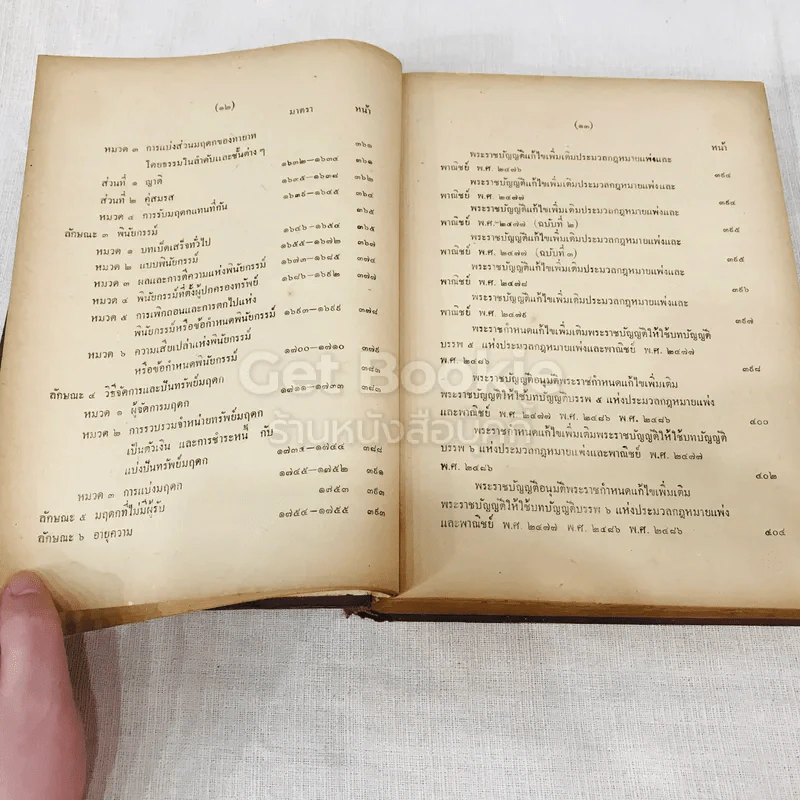 (๑๒)
มาตรา หน้า
หมวด ๓ การแบ่งส่วนมฤดกของทายาท
โดยธรรมในลำดับและชั้นต่าง ๆ ๓๖๑
ส่วนที่ ๑ ญาติ ๑๖๓๒–๑๖๓๔ ๓๖๑
ส่วนที่ ๒ คู่สมรส ๑๖๓๕–๑๖๓๘ ๓๖๒
หมวด ๔ การรับมฤดกแทนที่กัน ๑๖๓๙–๑๖๔๕ ๓๖๔
ลักษณะ ๓ พินัยกรรม์ ๓๖๕
หมวด ๑ บทเบ็ดเสร็จทั่วไป ๑๖๔๖–๑๖๕๔ ๓๖๕
หมวด ๒ แบบพินัยกรรม์ ๑๖๕๕–๑๖๗๒ ๓๖๗
หมวด ๓ ผลและการตีความแห่งพินัยกรรม์ ๑๖๗๓–๑๖๘๕ ๓๗๔
หมวด ๔ พินัยกรรม์ที่ตั้งผู้ปกครองทรัพย์ ๑๖๘๖–๑๖๙๒ ๓๗๗
หมวด ๕ การเพิกถอนและการตกไปแห่ง
พินัยกรรม์หรือข้อกำหนดพินัยกรรม์ ๑๖๙๓–๑๖๙๙ ๓๗๘
หมวด ๖ ความเสียเปล่าแห่งพินัยกรรม์
หรือข้อกำหนดพินัยกรรม์ ๑๗๐๐–๑๗๑๐ ๓๗๙
ลักษณะ ๔ วิธีจัดการและปันทรัพย์มฤดก ๓๘๓
หมวด ๑ ผู้จัดการมฤดก ๑๗๑๑–๑๗๓๓ ๓๘๓
หมวด ๒ การรวบรวมจำหน่ายทรัพย์มฤดก
เป็นตัวเงิน และการชำระหนี้ กับ
แบ่งปันทรัพย์มฤดก ๑๗๓๔–๑๗๔๔ ๓๘๘
หมวด ๓ การแบ่งมฤดก ๑๗๔๕–๑๗๕๒ ๓๙๑
ลักษณะ ๕ มฤดกที่ไม่มีผู้รับ ๑๗๕๓ ๓๙๓
ลักษณะ ๖ อายุความ ๑๗๕๔–๑๗๕๕ ๓๙๓
(๑๓)
หน้า
พระราชบัญญัติแก้ไขเพิ่มเติมประมวลกฎหมายแพ่งและ
พาณิชย์ พ.ศ. ๒๔๗๖ ๓๙๔
พระราชบัญญัติแก้ไขเพิ่มเติมประมวลกฎหมายแพ่งและ
พาณิชย์ พ.ศ. ๒๔๗๗ ๓๙๔
พระราชบัญญัติแก้ไขเพิ่มเติมประมวลกฎหมายแพ่งและ
พาณิชย์ พ.ศ. ๒๔๗๗ (ฉบับที่ ๒) ๓๙๕
พระราชบัญญัติแก้ไขเพิ่มเติมประมวลกฎหมายแพ่งและ
พาณิชย์ พ.ศ. ๒๔๗๗ (ฉบับที่ ๓) ๓๙๕
พระราชบัญญัติแก้ไขเพิ่มเติมประมวลกฎหมายแพ่งและ
พาณิชย์ พ.ศ. ๒๔๗๘ ๓๙๖
พระราชบัญญัติแก้ไขเพิ่มเติมประมวลกฎหมายแพ่งและ
พาณิชย์ พ.ศ. ๒๔๗๙ ๓๙๗
พระราชกำหนดแก้ไขเพิ่มเติมพระราชบัญญัติให้ใช้บทบัญญัติ
บรรพ ๕ แห่งประมวลกฎหมายแพ่งและพาณิชย์ พ.ศ. ๒๔๗๗
พ.ศ. ๒๔๘๖ ๓๙๘
พระราชบัญญัติอนุมัติพระราชกำหนดแก้ไขเพิ่มเติม
พระราชบัญญัติให้ใช้บทบัญญัติบรรพ ๕ แห่งประมวลกฎหมายแพ่ง
และพาณิชย์ พ.ศ. ๒๔๗๗ พ.ศ. ๒๔๘๖ พ.ศ. ๒๔๘๖ ๔๐๐
พระราชกำหนดแก้ไขเพิ่มเติมพระราชบัญญัติให้ใช้บทบัญญัติ
บรรพ ๖ แห่งประมวลกฎหมายแพ่งและพาณิชย์ พ.ศ. ๒๔๗๗
พ.ศ. ๒๔๘๖ ๔๐๒
พระราชบัญญัติอนุมัติพระราชกำหนดแก้ไขเพิ่มเติม
พระราชบัญญัติให้ใช้บทบัญญัติบรรพ ๖ แห่งประมวลกฎหมายแพ่ง
และพาณิชย์ พ.ศ. ๒๔๗๗ พ.ศ. ๒๔๘๖ พ.ศ. ๒๔๘๖ ๔๐๔
Get Bookie